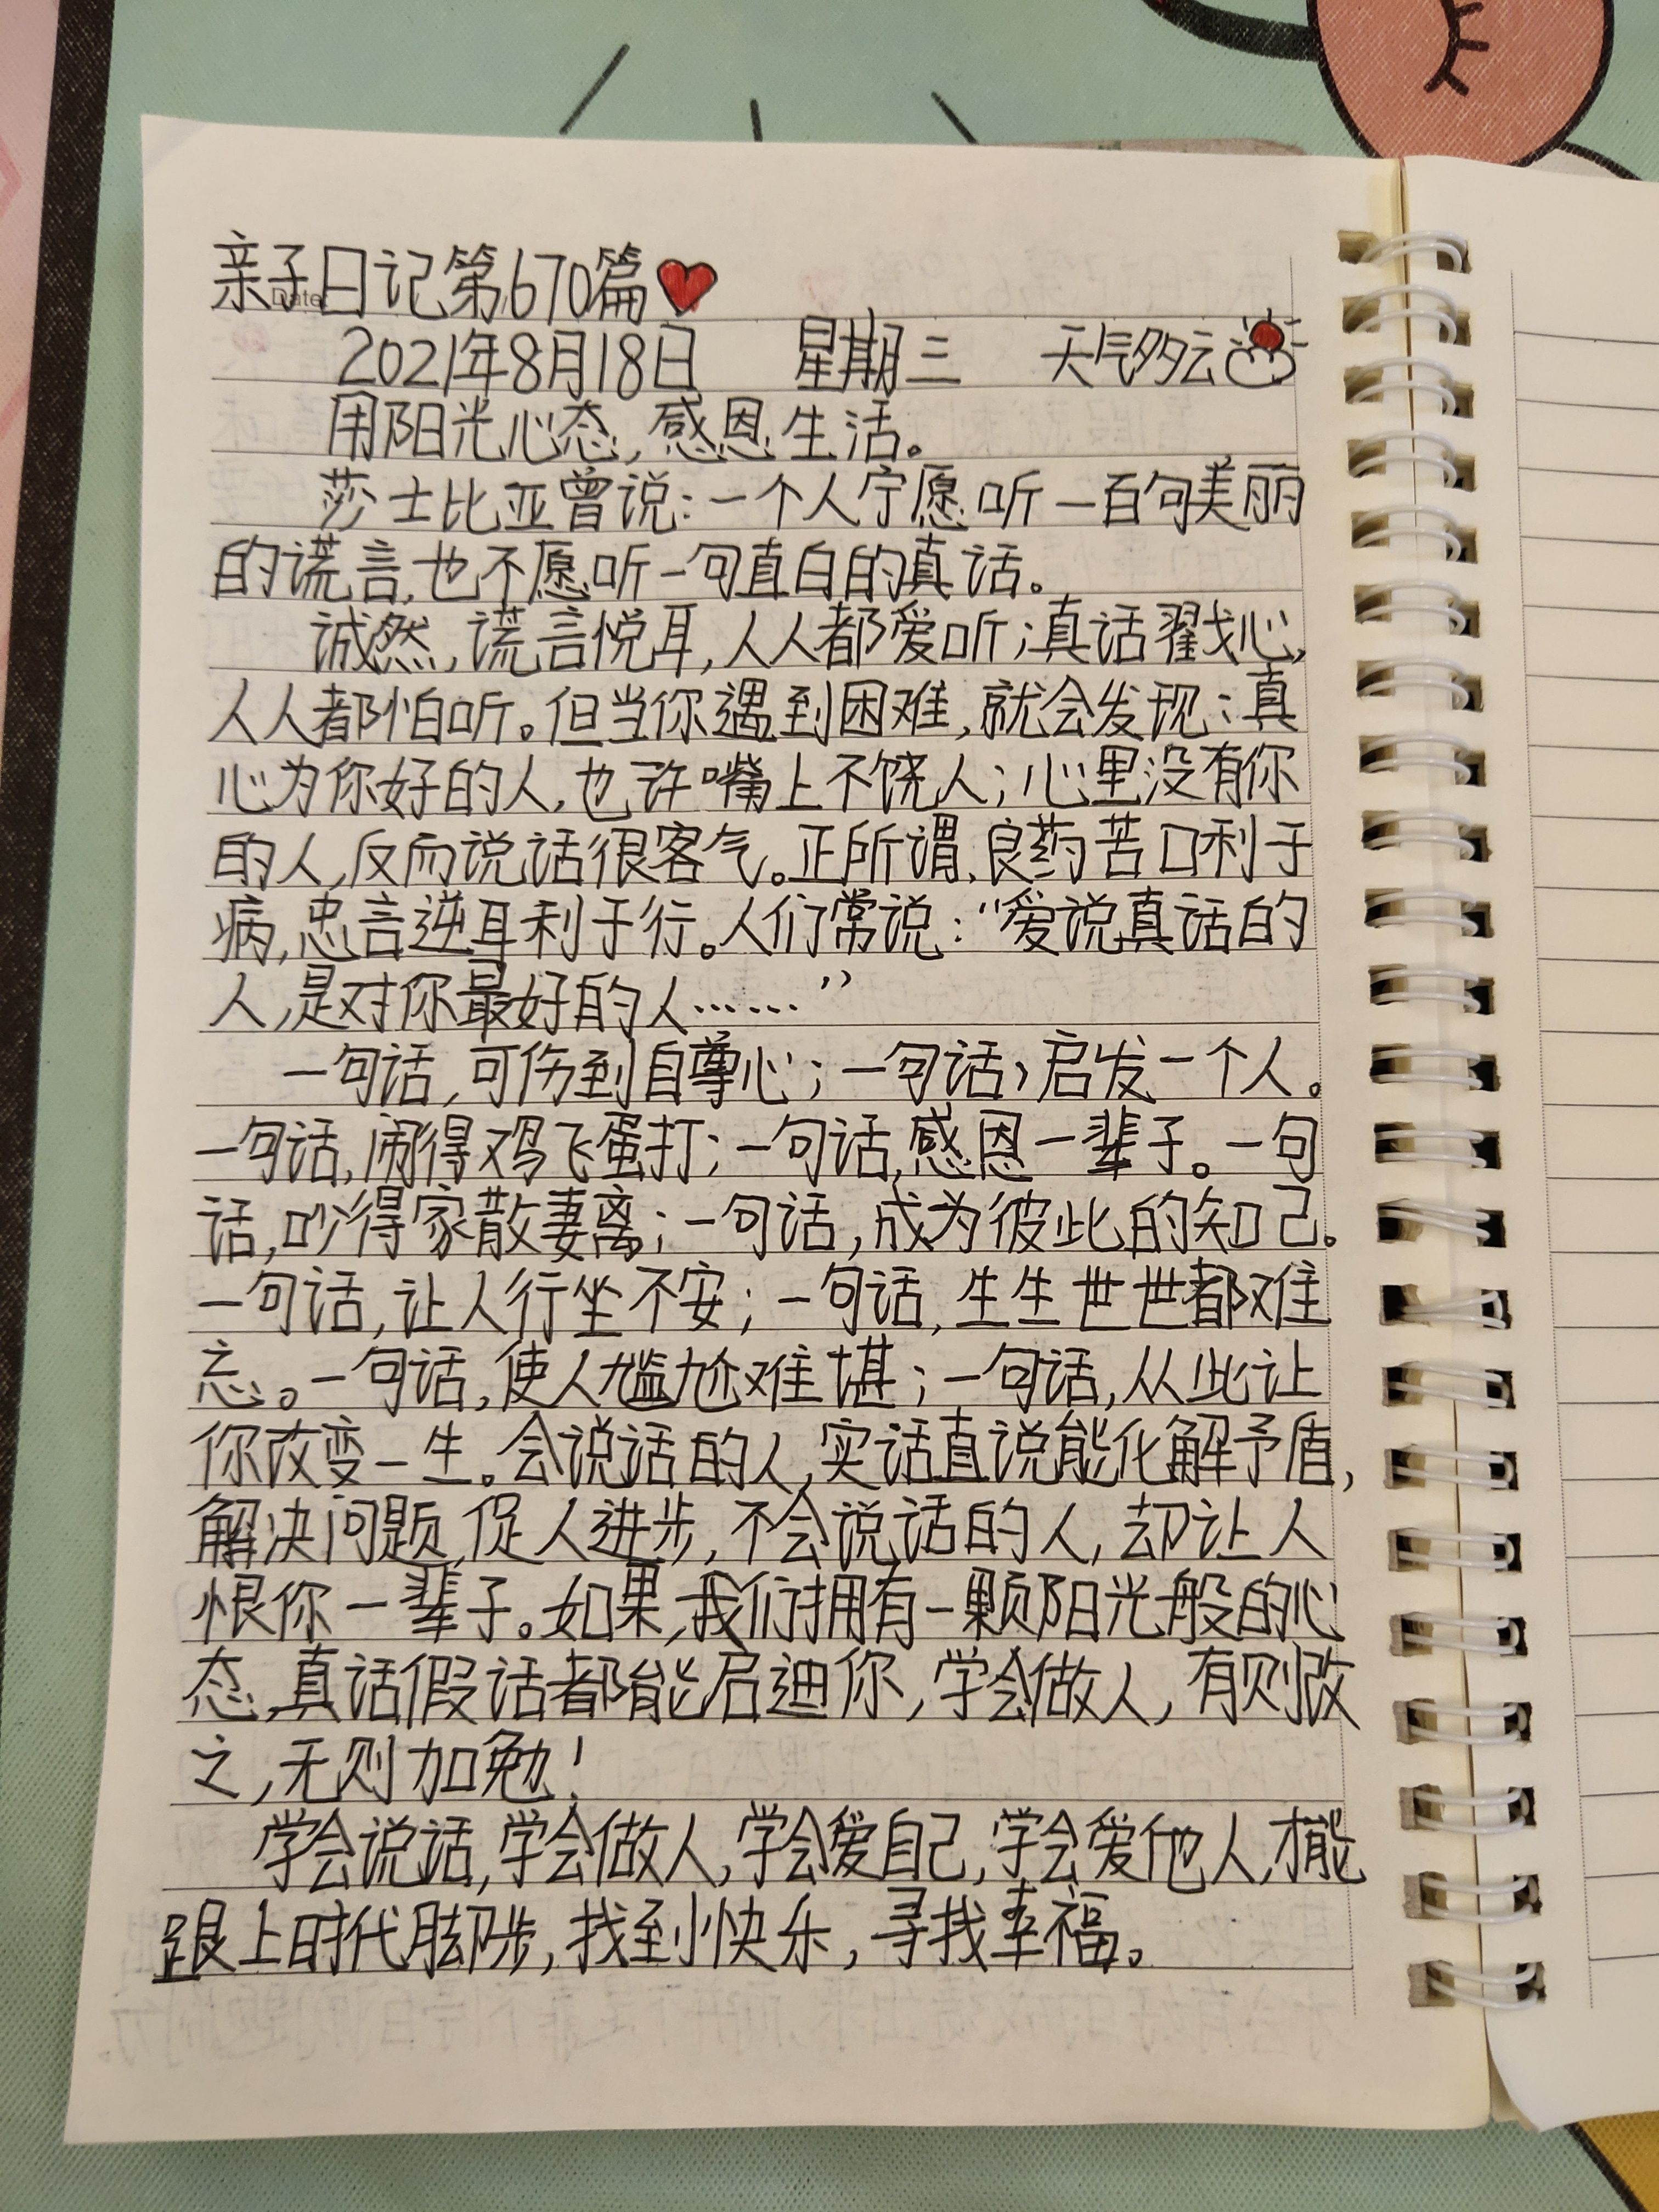 亲子日记第670篇
Date
2021年8月18日 星期三 天气多云
用阳光心态,感恩生活。
莎士比亚曾说:一个人宁愿听一百句美丽
的谎言,也不愿听一句直白的真话。
诚然,谎言悦耳,人人都爱听;真话戳心,
人人都怕听。但当你遇到困难,就会发现:真
心为你好的人,也许嘴上不饶人;心里没有你
的人,反而说话很客气。正所谓,良药苦口利于
病,忠言逆耳利于行。人们常说:“爱说真话的
人,是对你最好的人……”
一句话,可伤到自尊心;一句话,启发一个人。
一句话,闹得鸡飞蛋打;一句话,感恩一辈子。一句
话,吵得家散妻离;一句话,成为彼此的知己。
一句话,让人行坐不安;一句话,生生世世都难
忘。一句话,使人尴尬难堪;一句话,从此让
你改变一生。会说话的人,实话直说能化解予盾,
解决问题,促人进步,不会说话的人,却让人
恨你一辈子。如果,我们拥有一颗阳光般的心
态,真话假话都能启迪你,学会做人,有则改
之,无则加勉!
学会说话,学会做人,学会爱自己,学会爱他人,才能
跟上时代脚步,找到快乐,寻找幸福。